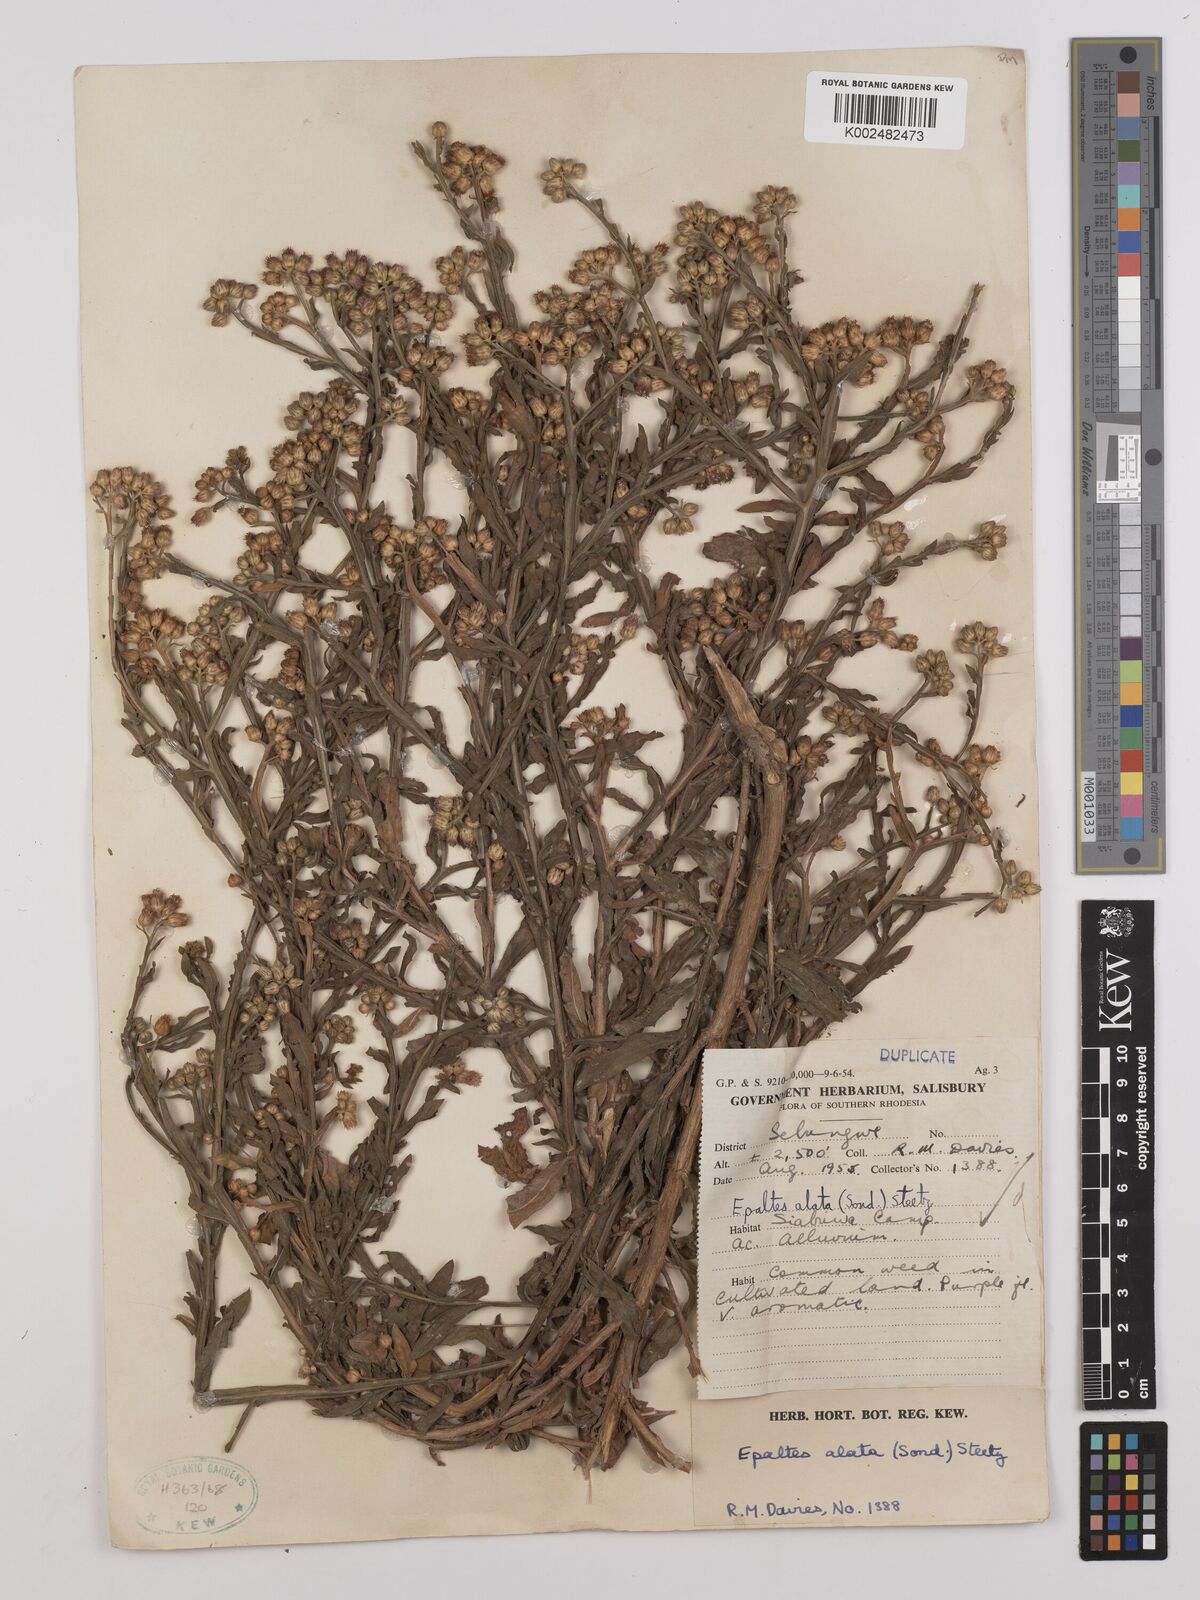 ROYAL BOTANIC GARDENS KEW
K002482473
DUPLICATE
G.P. & S. 9210 0,000—9-6-54. Ag. 3
GOVERNMENT HERBARIUM, SALISBURY
FLORA OF SOUTHERN RHODESIA
District Sebungwe No.
Alt. ± 2,500' Coll. R. M. Davies.
Date Aug. 1955 Collector's No. 1388.
Epaltes alata (Sond.) Steetz
Habitat Siabuwa Camp.
Ac. Alluvium.
Habit Common weed in
cultivated land. Purple fl.
V. aromatic.
HERB. HORT. BOT. REG. KEW.
Epaltes alata (Sond.) Steetz
R.M. Davies, No. 1388
ROYAL BOTANIC GARDENS
H363/68
120
KEW
inches
Density
Don Williams
M001033
centimeters
Royal Botanic Gardens
Kew
copyright reserved
0 1 2 3 4 5 6 7 8 9 10
cm